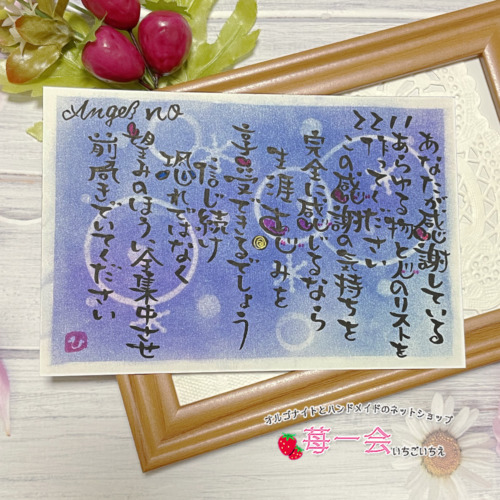 Angel no
あなたが感謝している
11あらゆる物と心のリストを
22作ってください
この感謝の気持ちを
完全に感じてるなら
生涯恵みを
享受できるでしょう
信じ続け
恐れではなく
望みのほうへ全集中させ
前向きでいてください
ひ
オルゴナイトとハンドメイドのネットショップ
苺一会 いちごいちえ